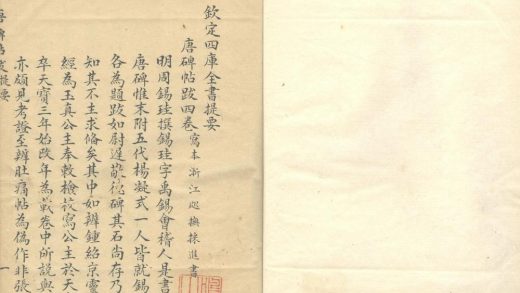 欽定四庫全書提要
唐碑帖跋四卷 寫本浙江巡撫採進書
明周錫珪撰錫珪字禹錫會稽人是書
唐碑惟末附五代楊凝式一人皆就錫
各為題跋如尉遲敬德碑其石尚存乃
知其不主求備矣其中如辨鍾紹京靈
經為玉真公主奉敕檢校寫公主於天
卒天寶三年始改年為載卷中所説與
亦頗見考證至辨肚痛帖為偽作非張
唐碑帖跋提要
一